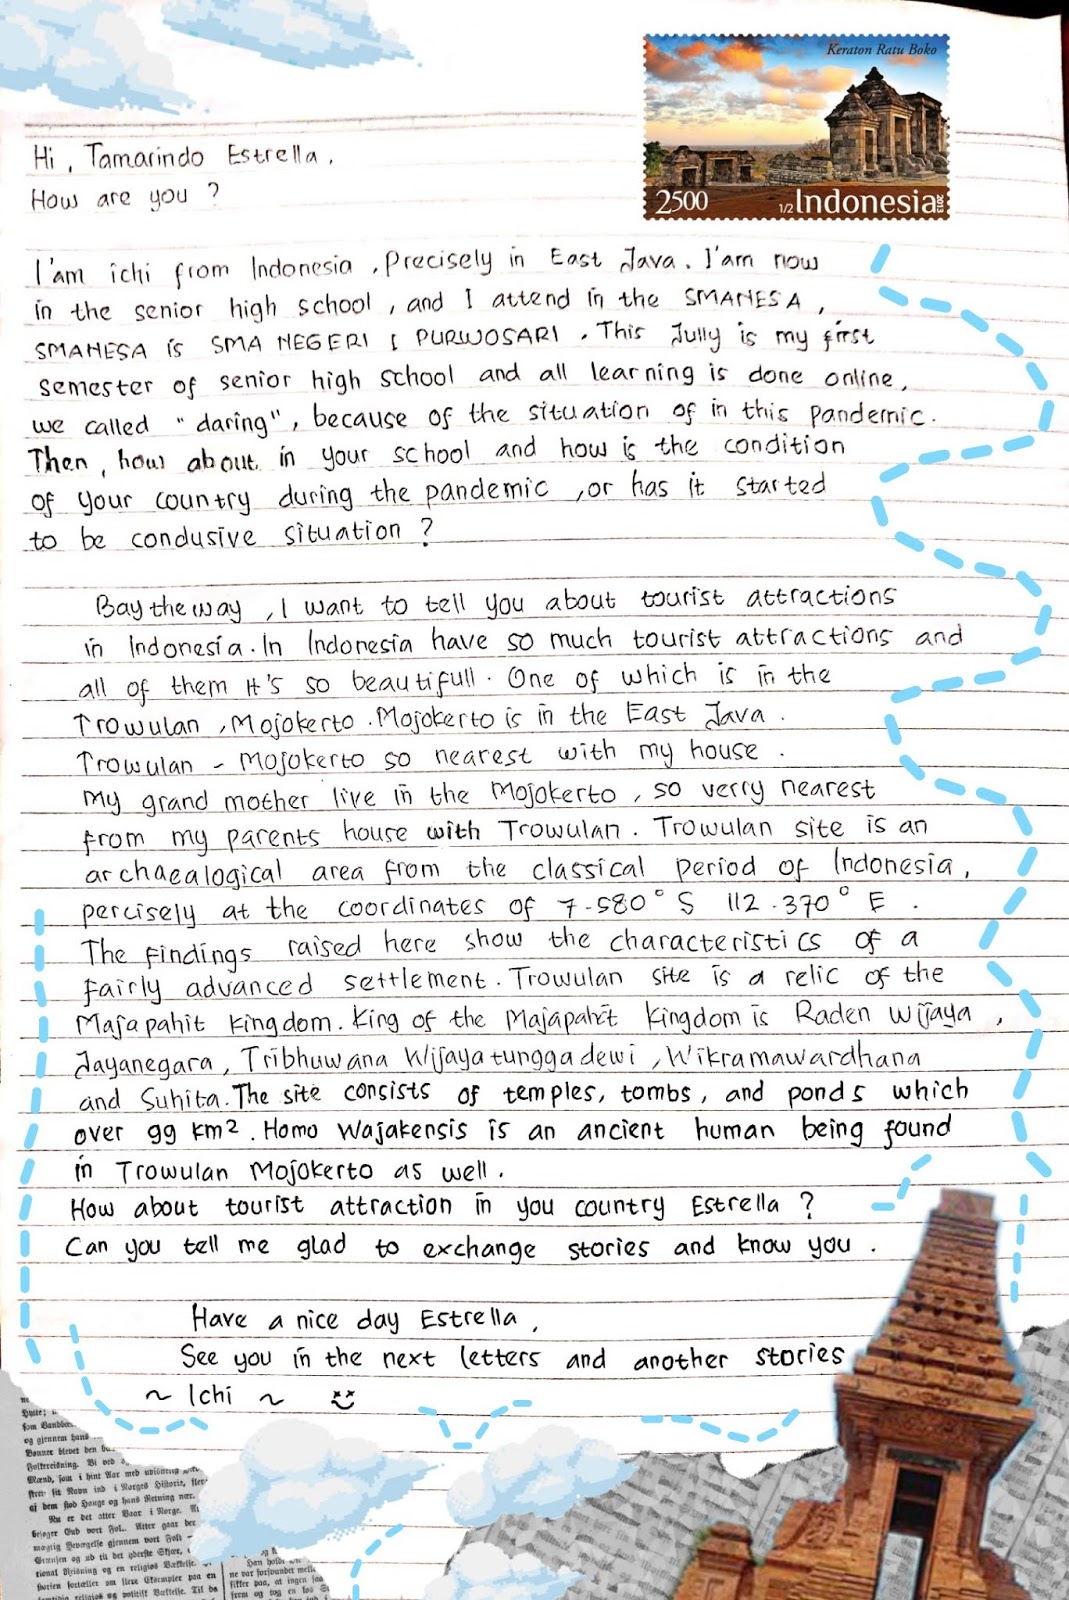 Keraton Ratu Boko
2500 1/2 Indonesia 2013
Hi, Tamarindo Estrella,
How are you ?
I'am ichi from Indonesia, Precisely in East Java. I'am now
in the senior high school, and I attend in the SMANESA,
SMANESA is SMA NEGERI 1 PURWOSARI. This Jully is my first
semester of senior high school and all learning is done online,
we called "daring", because of the situation of in this pandemic.
Then, how about in your school and how is the condition
of your country during the pandemic, or has it started
to be condusive situation ?
Bay the way, I want to tell you about tourist attractions
in Indonesia. In Indonesia have so much tourist attractions and
all of them It's so beautifull. One of which is in the
Trowulan, Mojokerto. Mojokerto is in the East Java.
Trowulan - Mojokerto so nearest with my house.
My grand mother live in the Mojokerto, so verry nearest
from my parents house with Trowulan. Trowulan site is an
archaealogical area from the classical period of Indonesia,
percisely at the coordinates of 7.580° S 112.370° E.
The findings raised here show the characteristics of a
fairly advanced settlement. Trowulan site is a relic of the
Majapahit kingdom. King of the Majapahit kingdom is Raden Wijaya,
Jayanegara, Tribhuwana Wijayatunggadewi, Wikramawardhana
and Suhita. The site consists of temples, tombs, and ponds which
over 99 km². Homo Wajakensis is an ancient human being found
in Trowulan Mojokerto as well.
How about tourist attraction in you country Estrella ?
Can you tell me glad to exchange stories and know you.
Have a nice day Estrella,
See you in the next letters and another stories
~ Ichi ~